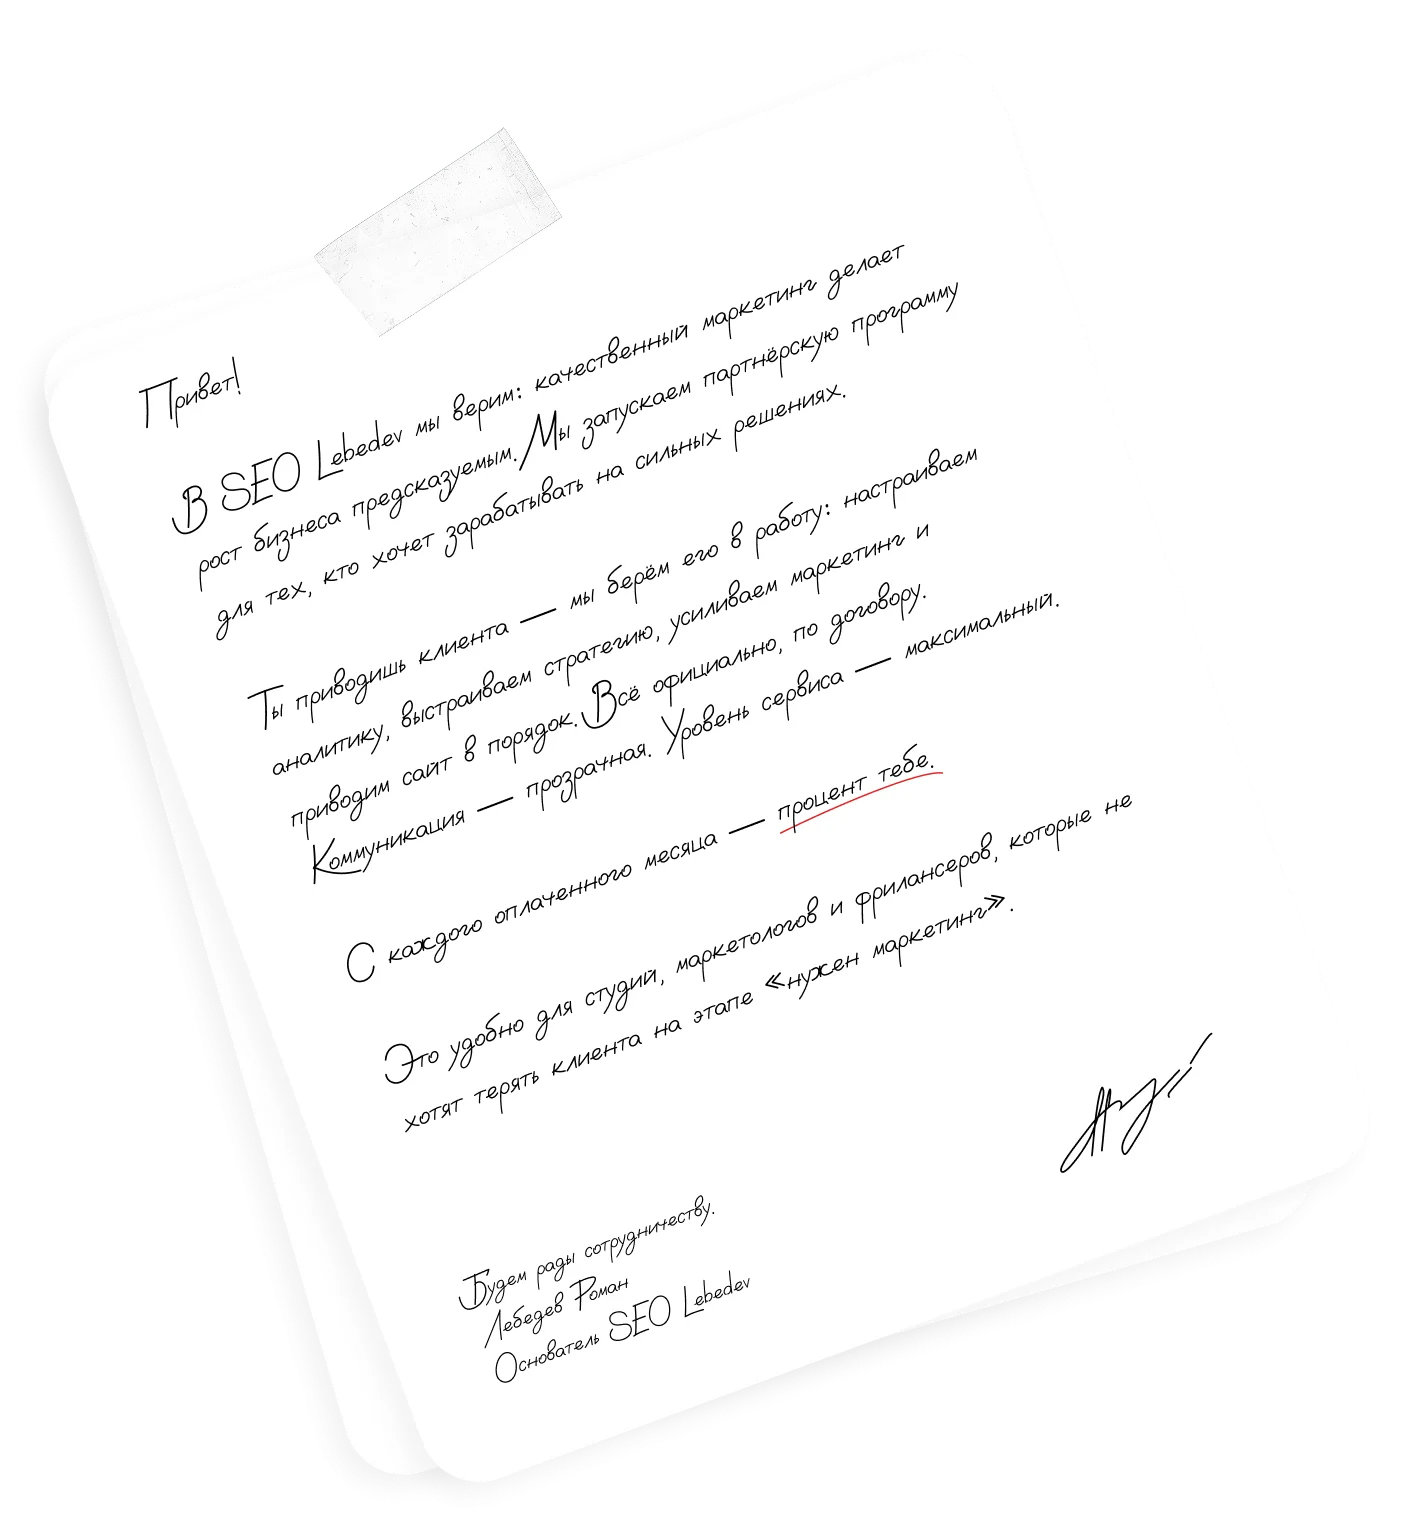 Привет!
В SEO Lebedev мы верим: качественный маркетинг делает
рост бизнеса предсказуемым. Мы запускаем партнёрскую программу
для тех, кто хочет зарабатывать на сильных решениях.
Ты приводишь клиента — мы берём его в работу: настраиваем
аналитику, выстраиваем стратегию, усиливаем маркетинг и
приводим сайт в порядок. Всё официально, по договору.
Коммуникация — прозрачная. Уровень сервиса — максимальный.
С каждого оплаченного месяца — процент тебе.
Это удобно для студий, маркетологов и фрилансеров, которые не
хотят терять клиента на этапе «нужен маркетинг».
Будем рады сотрудничеству.
Лебедев Роман
Основатель SEO Lebedev